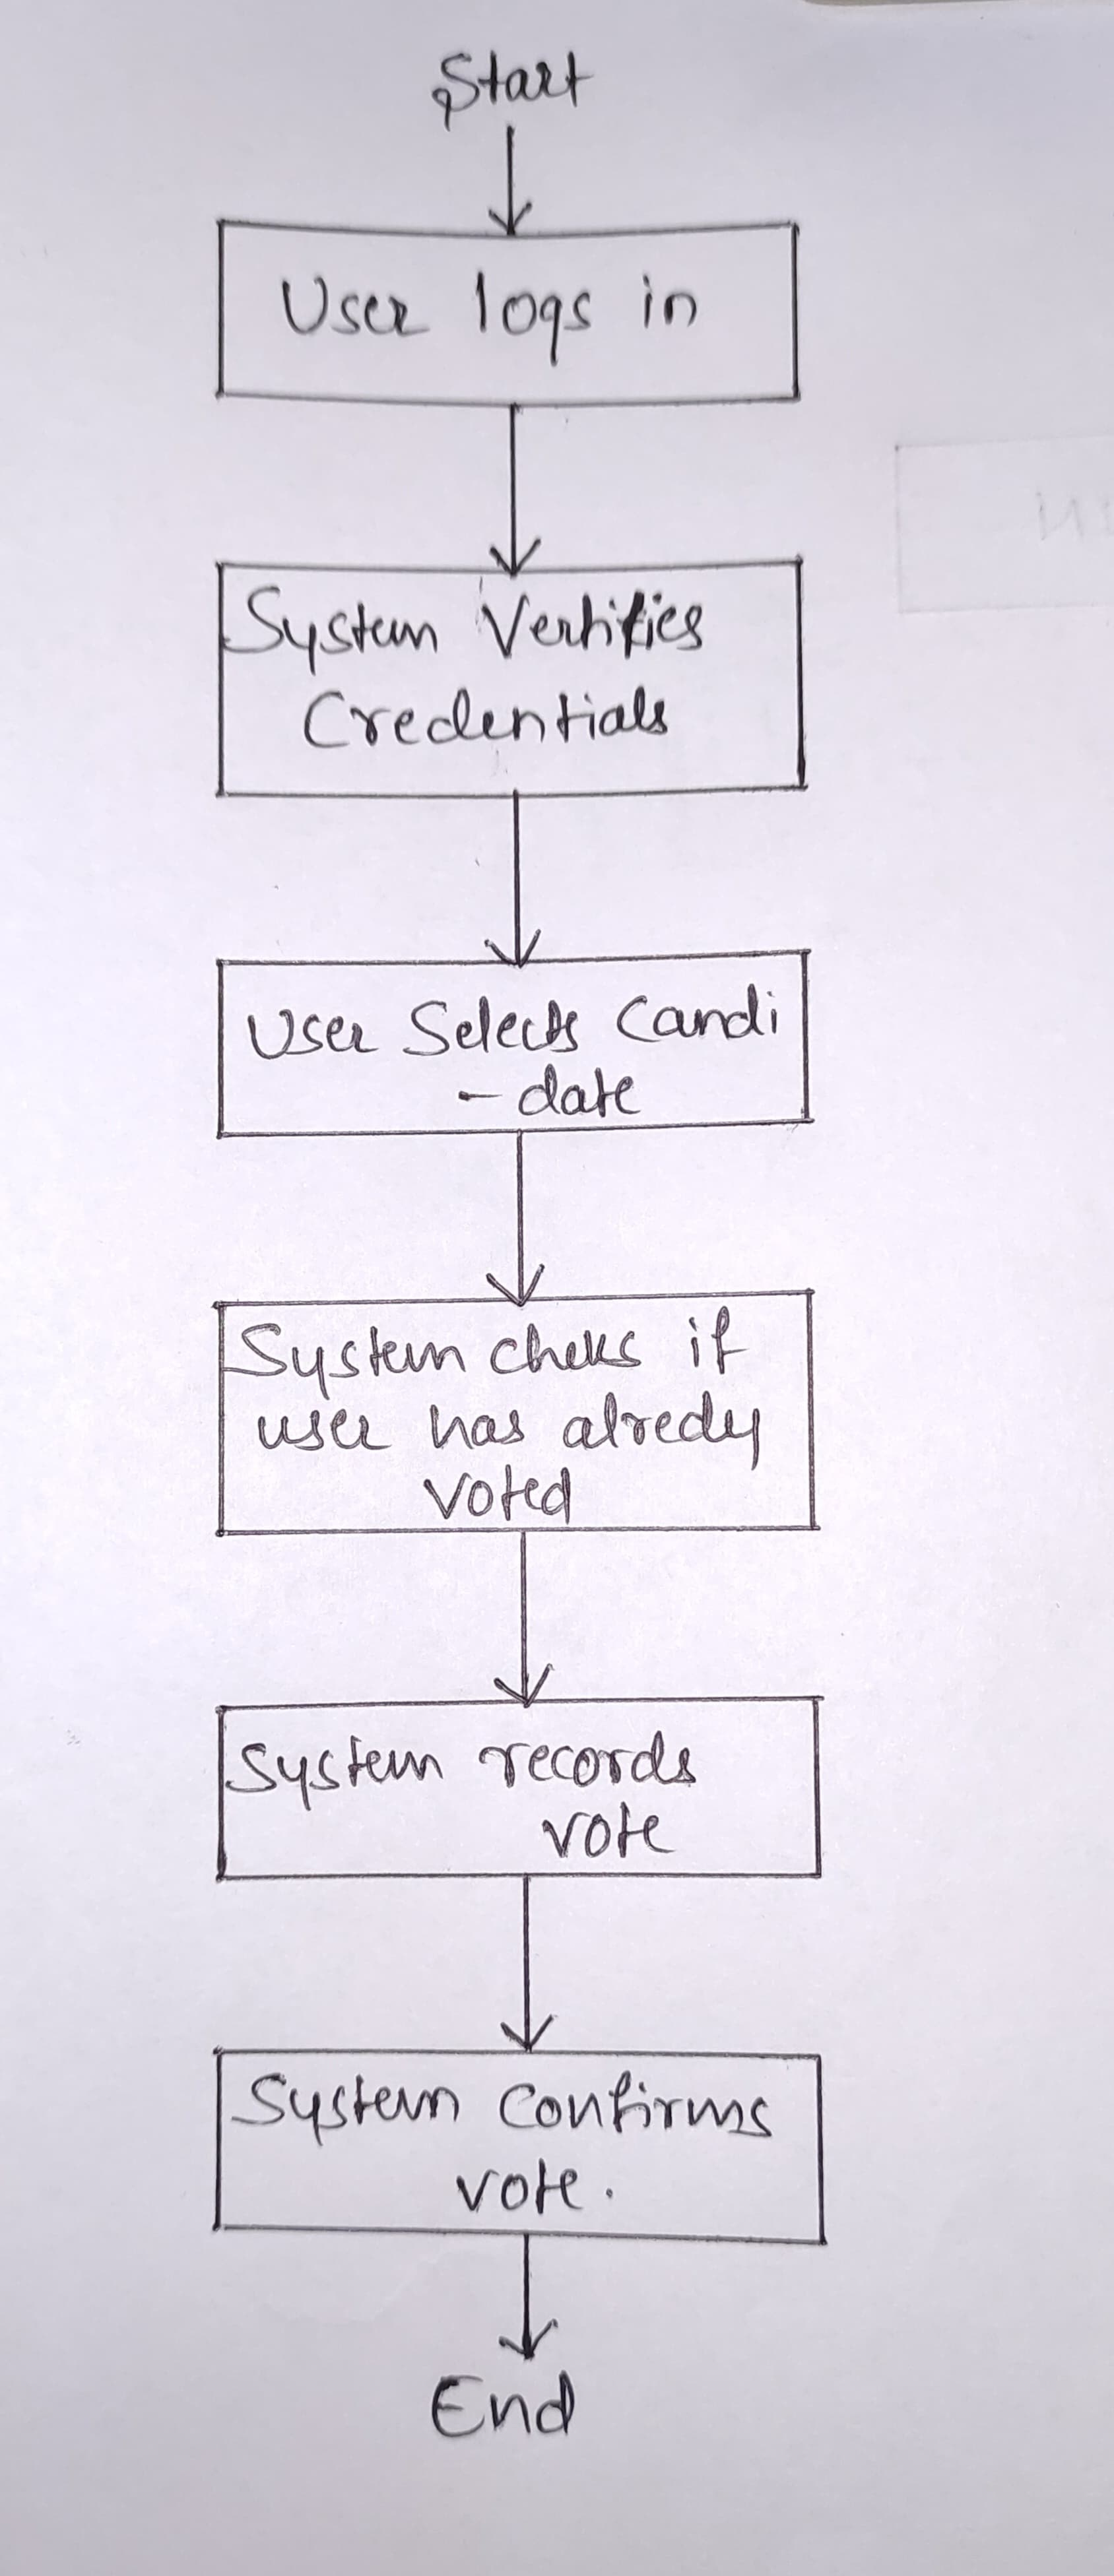 Start
User logs in
System Vertifies
Credentials
User Selects Candi
- date
System cheks if
user has alredy
voted
System records
vote
System Confirms
vote.
End